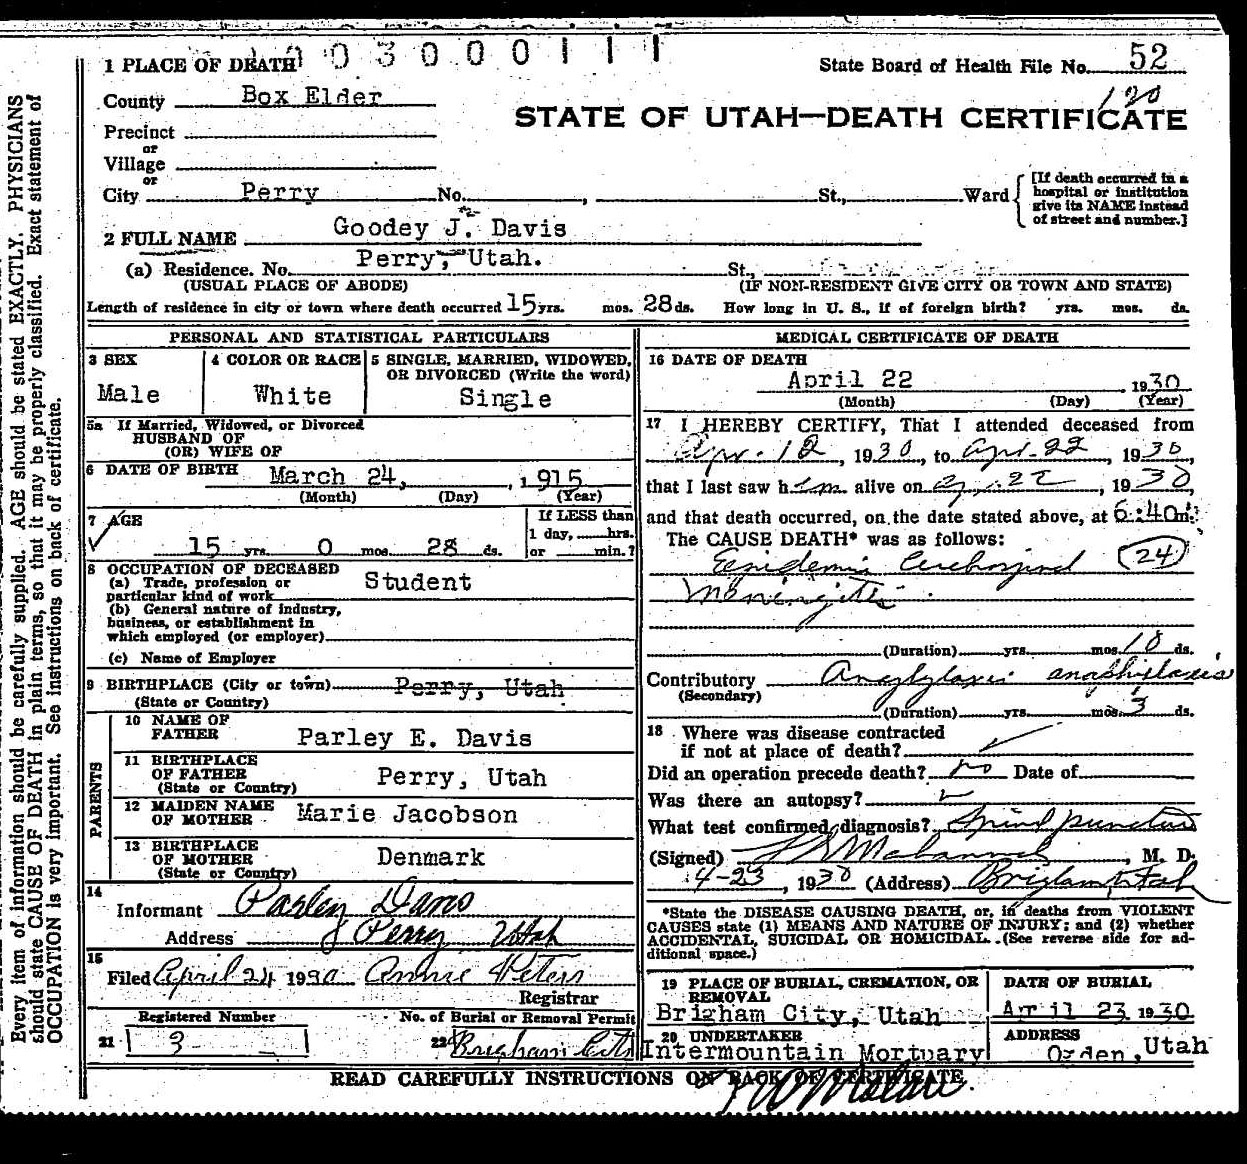 1 PLACE OF DEATH 003000111
State Board of Health File No. 52
County Box Elder
120
STATE OF UTAH—DEATH CERTIFICATE
Precinct
or
Village
or
City Perry No. , St., Ward
[If death occurred in a hospital or institution give its NAME instead of street and number.]
2 FULL NAME Goodey J. Davis
(a) Residence. No. Perry, Utah. St.,
(USUAL PLACE OF ABODE) (IF NON-RESIDENT GIVE CITY OR TOWN AND STATE)
Length of residence in city or town where death occurred 15 yrs. mos. 28 ds. How long in U. S., if of foreign birth? yrs. mos. ds.
PERSONAL AND STATISTICAL PARTICULARS
3 SEX
Male
4 COLOR OR RACE
White
5 SINGLE, MARRIED, WIDOWED, OR DIVORCED (Write the word)
Single
5a If Married, Widowed, or Divorced
HUSBAND OF
(OR) WIFE OF
6 DATE OF BIRTH March 24, , 1915
(Month) (Day) (Year)
7 AGE
15 yrs. 0 mos. 28 ds.
If LESS than
1 day, hrs.
or min.?
8 OCCUPATION OF DECEASED
(a) Trade, profession or
particular kind of work Student
(b) General nature of industry,
business, or establishment in
which employed (or employer)
(c) Name of Employer
9 BIRTHPLACE (City or town) Perry, Utah
(State or Country)
PARENTS
10 NAME OF
FATHER Parley E. Davis
11 BIRTHPLACE
OF FATHER Perry, Utah
(State or Country)
12 MAIDEN NAME
OF MOTHER Marie Jacobson
13 BIRTHPLACE
OF MOTHER Denmark
(State or Country)
14
Informant Parley Davis
Address Perry Utah
15
Filed April 24 1930 Annie Peters
Registrar
Registered Number
21 3
No. of Burial or Removal Permit
22 Brigham City
MEDICAL CERTIFICATE OF DEATH
16 DATE OF DEATH
April 22 1930
(Month) (Day) (Year)
17 I HEREBY CERTIFY, That I attended deceased from
Apr. 12, 1930, to Apr. 22, 1930,
that I last saw him alive on Ap. 22, 1930,
and that death occurred, on the date stated above, at 6:40 m.
The CAUSE DEATH* was as follows:
Epidemic Cerebrospinal (24)
Meningitis
(Duration) yrs. mos. 10 ds.
Contributory Anaphylaxis anaphylaxis
(Secondary)
(Duration) yrs. mos. 3 ds.
18 Where was disease contracted
if not at place of death?
Did an operation precede death? no Date of
Was there an autopsy?
What test confirmed diagnosis? Spinal puncture
(Signed) , M. D.
4-23, 1930 (Address) Brigham Utah
*State the DISEASE CAUSING DEATH, or, in deaths from VIOLENT
CAUSES state (1) MEANS AND NATURE OF INJURY; and (2) whether
ACCIDENTAL, SUICIDAL OR HOMICIDAL. (See reverse side for ad-
ditional space.)
19 PLACE OF BURIAL, CREMATION, OR
REMOVAL
Brigham City, Utah
DATE OF BURIAL
April 23 1930
20 UNDERTAKER
Intermountain Mortuary
ADDRESS
Ogden, Utah
READ CAREFULLY INSTRUCTIONS ON BACK OF CERTIFICATE
Every item of information should be carefully supplied. AGE should be stated EXACTLY. PHYSICIANS
should state CAUSE OF DEATH in plain terms, so that it may be properly classified. Exact statement of
OCCUPATION is very important. See instructions on back of certificate.